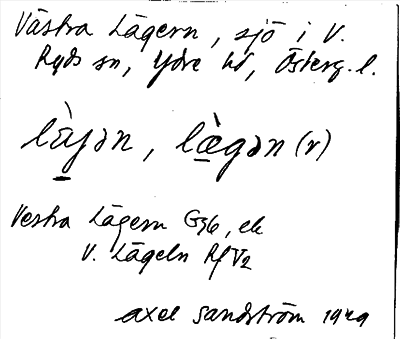 Västra Lägern, sjö i V.
Ryds sn, Ydre hd, Österg. l.
lὰ̱jən, læ̱̀gən (r)
Vestra Lägern G36, ek
V. Lägeln Rf V2
Axel Sandström 1929